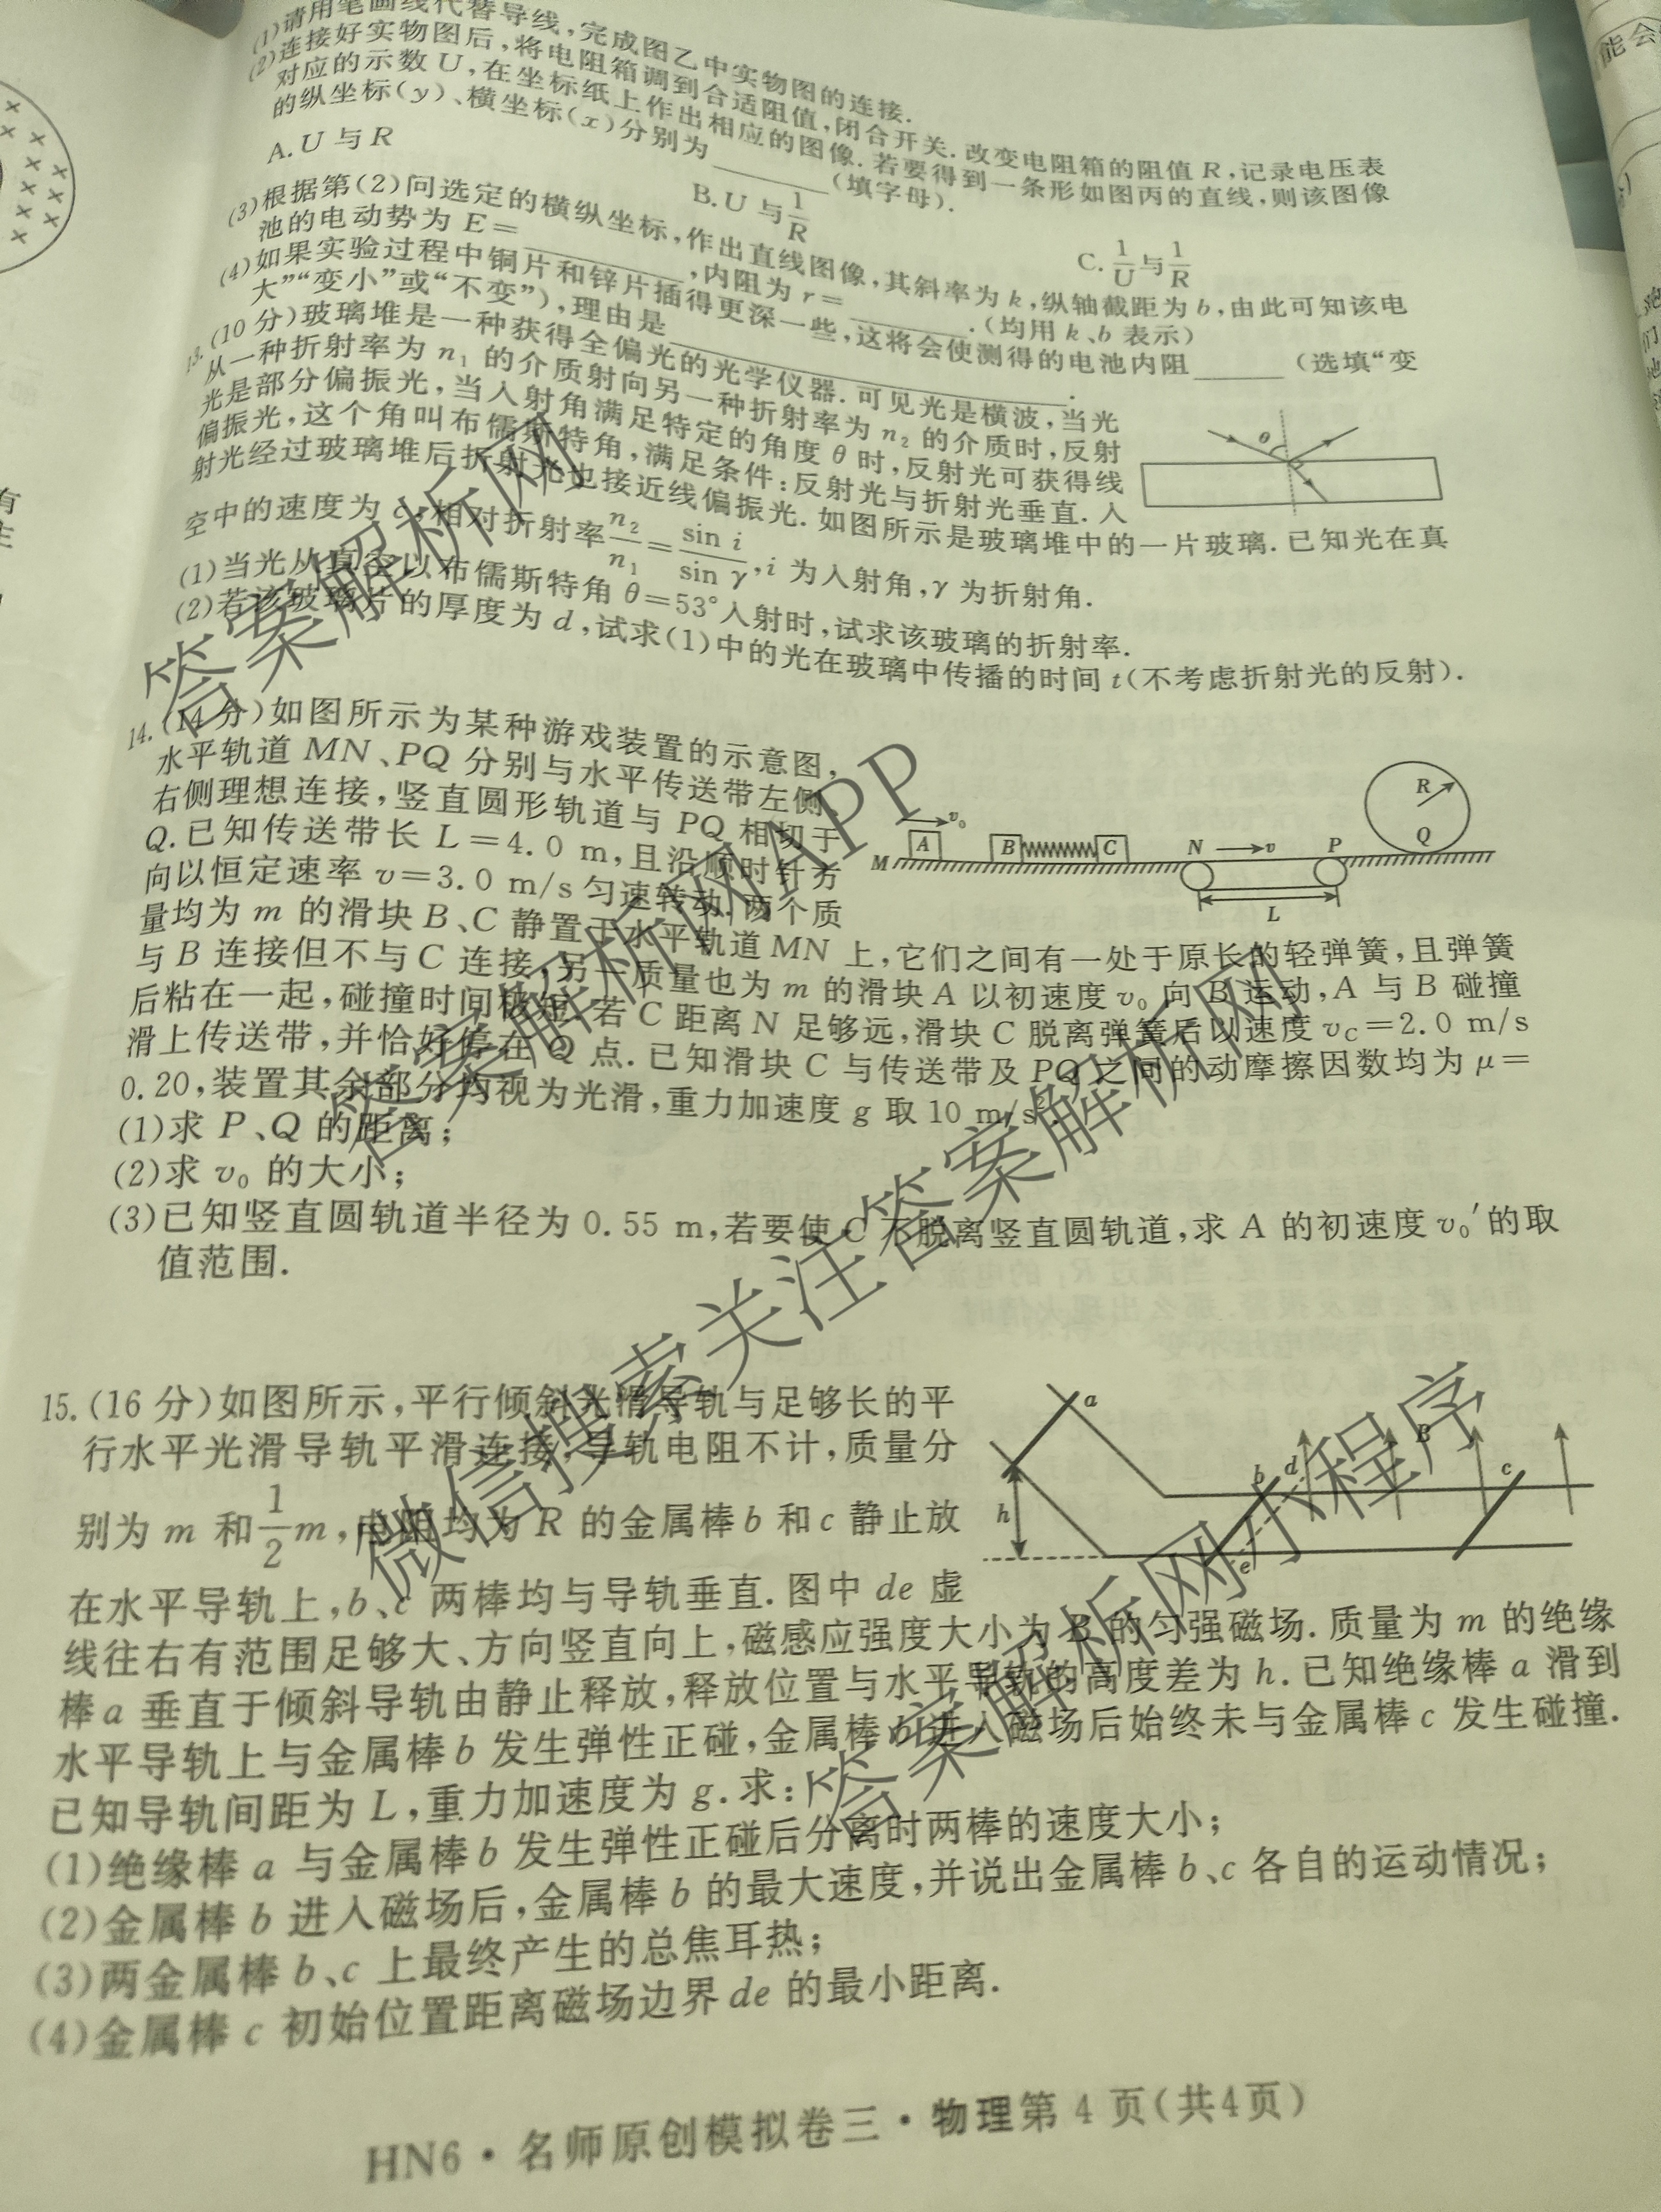 (1)请用笔画线代替导线,完成图乙中实物图的连接.
(2)连接好实物图后,将电阻箱调到合适阻值,闭合开关.改变电阻箱的阻值R,记录电压表
对应的示数U,在坐标纸上作出相应的图像.若要得到一条形如图丙的直线,则该图像
的纵坐标(y)、横坐标(x)分别为______(填字母).
A.U与R B.U与1/R C.1/U与1/R
(3)根据第(2)问选定的横纵坐标,作出直线图像,其斜率为k,纵轴截距为b,由此可知该电
池的电动势为E=______,内阻为r=______.(均用k、b表示)
(4)如果实验过程中铜片和锌片插得更深一些,这将会使测得的电池内阻______(选填“变
大”“变小”或“不变”),理由是______.
13.(10分)玻璃堆是一种获得全偏光的光学仪器.可见光是横波,当光
从一种折射率为n₁的介质射向另一种折射率为n₂的介质时,反射
光是部分偏振光,当入射角满足特定的角度θ时,反射光可获得线
偏振光,这个角叫布儒斯特角,满足条件:反射光与折射光垂直.入
射光经过玻璃堆后折射光也接近线偏振光.如图所示是玻璃堆中的一片玻璃.已知光在真
空中的速度为c,相对折射率n₂/n₁=sin i/sin γ,i为入射角,γ为折射角.
(1)当光从真空以布儒斯特角θ=53°入射时,试求该玻璃的折射率.
(2)若该玻璃片的厚度为d,试求(1)中的光在玻璃中传播的时间t(不考虑折射光的反射).
θ
14.(14分)如图所示为某种游戏装置的示意图,
水平轨道MN、PQ分别与水平传送带左侧、
右侧理想连接,竖直圆形轨道与PQ相切于
Q.已知传送带长L=4.0 m,且沿顺时针方
向以恒定速率v=3.0 m/s匀速转动.两个质
量均为m的滑块B、C静置于水平轨道MN上,它们之间有一处于原长的轻弹簧,且弹簧
与B连接但不与C连接,另一质量也为m的滑块A以初速度v₀向B运动,A与B碰撞
后粘在一起,碰撞时间极短.若C距离N足够远,滑块C脱离弹簧后以速度v_C=2.0 m/s
滑上传送带,并恰好停在Q点.已知滑块C与传送带及PQ之间的动摩擦因数均为μ=
0.20,装置其余部分均视为光滑,重力加速度g取10 m/s².
(1)求P、Q的距离;
(2)求v₀的大小;
(3)已知竖直圆轨道半径为0.55 m,若要使C不脱离竖直圆轨道,求A的初速度v₀′的取
值范围.
M A v₀ B C N v P L R Q
15.(16分)如图所示,平行倾斜光滑导轨与足够长的平
行水平光滑导轨平滑连接,导轨电阻不计,质量分
别为m和1/2m,电阻均为R的金属棒b和c静止放
在水平导轨上,b、c两棒均与导轨垂直.图中de虚
线往右有范围足够大、方向竖直向上,磁感应强度大小为B的匀强磁场.质量为m的绝缘
棒a垂直于倾斜导轨由静止释放,释放位置与水平导轨的高度差为h.已知绝缘棒a滑到
水平导轨上与金属棒b发生弹性正碰,金属棒b进入磁场后始终未与金属棒c发生碰撞.
已知导轨间距为L,重力加速度为g.求:
(1)绝缘棒a与金属棒b发生弹性正碰后分离时两棒的速度大小;
(2)金属棒b进入磁场后,金属棒b的最大速度,并说出金属棒b、c各自的运动情况;
(3)两金属棒b、c上最终产生的总焦耳热;
(4)金属棒c初始位置距离磁场边界de的最小距离.
a h b d e B c
HN6·名师原创模拟卷三·物理第4页(共4页)
答案解析网
答案解析网APP
微信搜索关注答案解析网
答案解析网小程序
能会
有